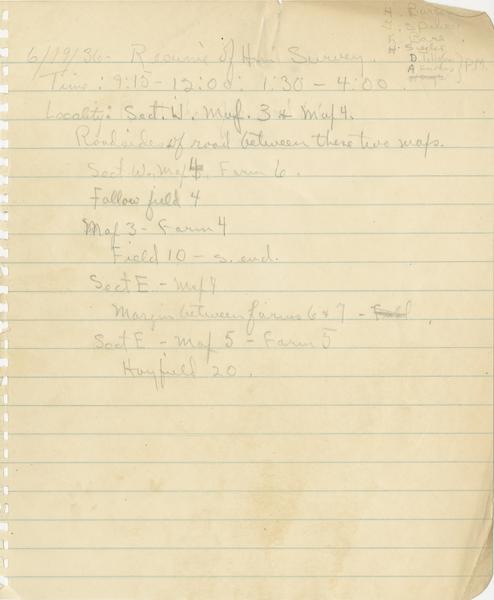 H.
K.
H.
D.
A.
P.M.
6/19/36 - Resumé of Survey.
Time: 9:15 - 12:00; 1:30 - 4:00
Locality: Sect. W. Map. 3 & Map 4.
Roadsides of road between these two maps.
Sect W., Map 4, Farm 6.
Fallow field 4
Map 3 - Farm 4
Field 10 - s. end.
Sect E. - Map 4
Margin between farms 6 & 7 -
Sect E - Map 5 - Farm 5
Hayfield 20.